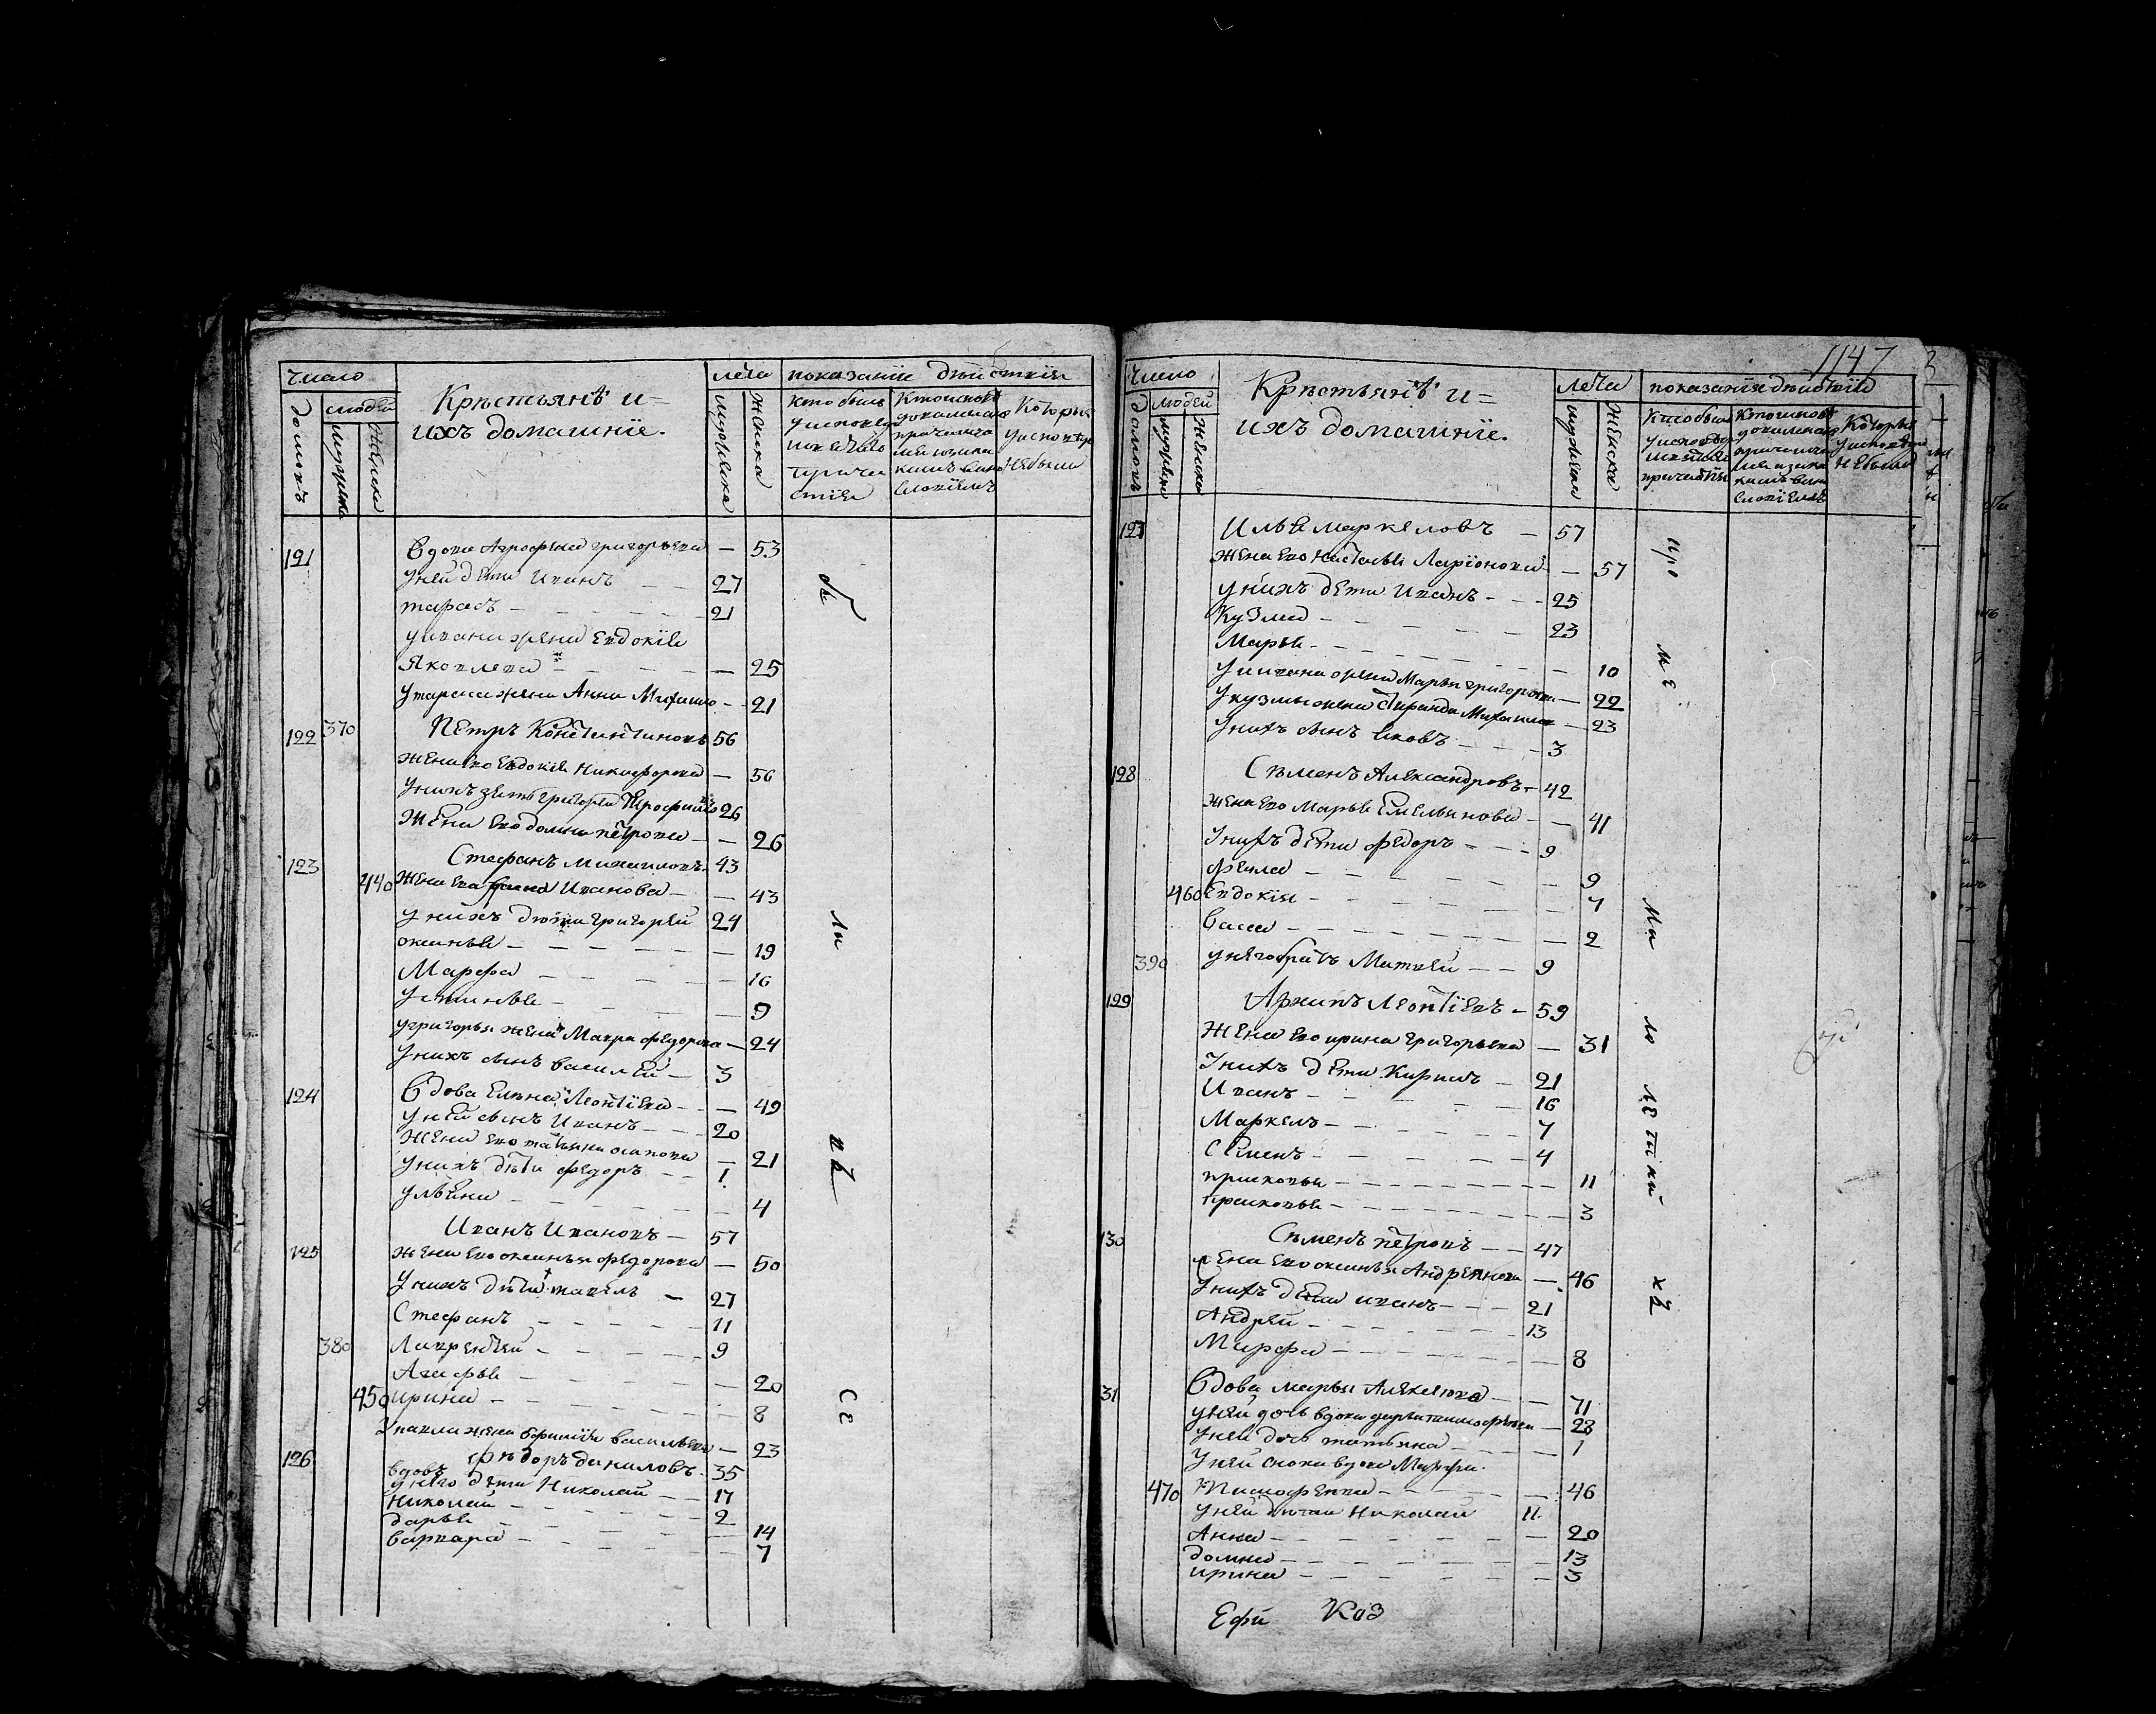 число
людей
домовъ
мужеска
женска
Крестьянѣ и=
ихъ домашніе.
лета
мужеска
женска
показаніе действия
Которые
121
Вдова Агрофена григорьева — 53
у ней дети Иванъ — 27
тарасъ — 21
у ивана жена Евдокія
Яковлева — 25
у тараса жена Анна — 21
122 370 Петръ Константиновъ 56
жена ево Евдокія Никифорова — 56
у нихъ зять григорей 26
Жена ево домна петрова — 26
123 Стефанъ михаиловъ 43
440 жена ево Иванова — 43
у нихъ дети григорей 24
оксинья — 19
Марфа — 16
Устинья — 9
у григорья жена Мавра федорова — 24
у нихъ сынъ василей — 3
124 Вдова Елена Леонтіева — 49
у ней сынъ Иванъ — 20
жена ево татьяна осипова — 21
у нихъ дети федоръ — 1
ульяна — 4
Иванъ Ивановъ — 57
125 жена ево оксинья федорова — 50
у нихъ дети павелъ — 27
Стефанъ — 11
380 Лаврентей — 9
Агафья — 20
450 ирина — 8
у павла жена Ефимия васильева — 23
126 вдовъ федоръ даниловъ 35
у него дети Николай — 17
николай — 2
дарья — 14
варвара — 7
бы
ли
пѣ
се
1147
число
людей
домовъ
мужеска
женска
Крестьянѣ и=
ихъ домашніе.
лета
мужеска
женска
показание действие
Которые
127 Илья маркеловъ — 57
жена ево наталья Ларіонова — 57
у нихъ дети Иванъ — 25
Кузма — 23
Марья — 10
у ивана жена Марья григорьева — 22
у кузмы жена — 23
у нихъ сынъ яковъ — 3
128 Семенъ Александровъ — 42
жена ево марья Емельянова — 41
у нихъ дети федоръ — 9
фекла — 9
460 Евдокия — 7
васса — 2
390 у него братъ Матвей — 9
129 Архипъ Леонтіевъ — 59
Жена ево ирина григорьева — 31
у нихъ дети Кирилъ — 21
Иванъ — 16
Маркелъ — 7
Семенъ — 4
прасковья — 11
прасковья — 3
130 Семенъ петровъ — 47
жена ево оксинья Андреянова — 46
у нихъ дети иванъ — 21
Андрей — 13
Марфа — 8
31 Вдова марья Алексеева — 71
у ней дочь вдова дарья тимофеева — 28
у ней дочь татьяна — 1
у ней сноха вдова Марфа
470 Тимофеева — 46
у ней дети Николай 11
Анна — 20
домна — 13
ирина — 3
про
ме
Ма
ло
летный
хъ
Ефи Коз